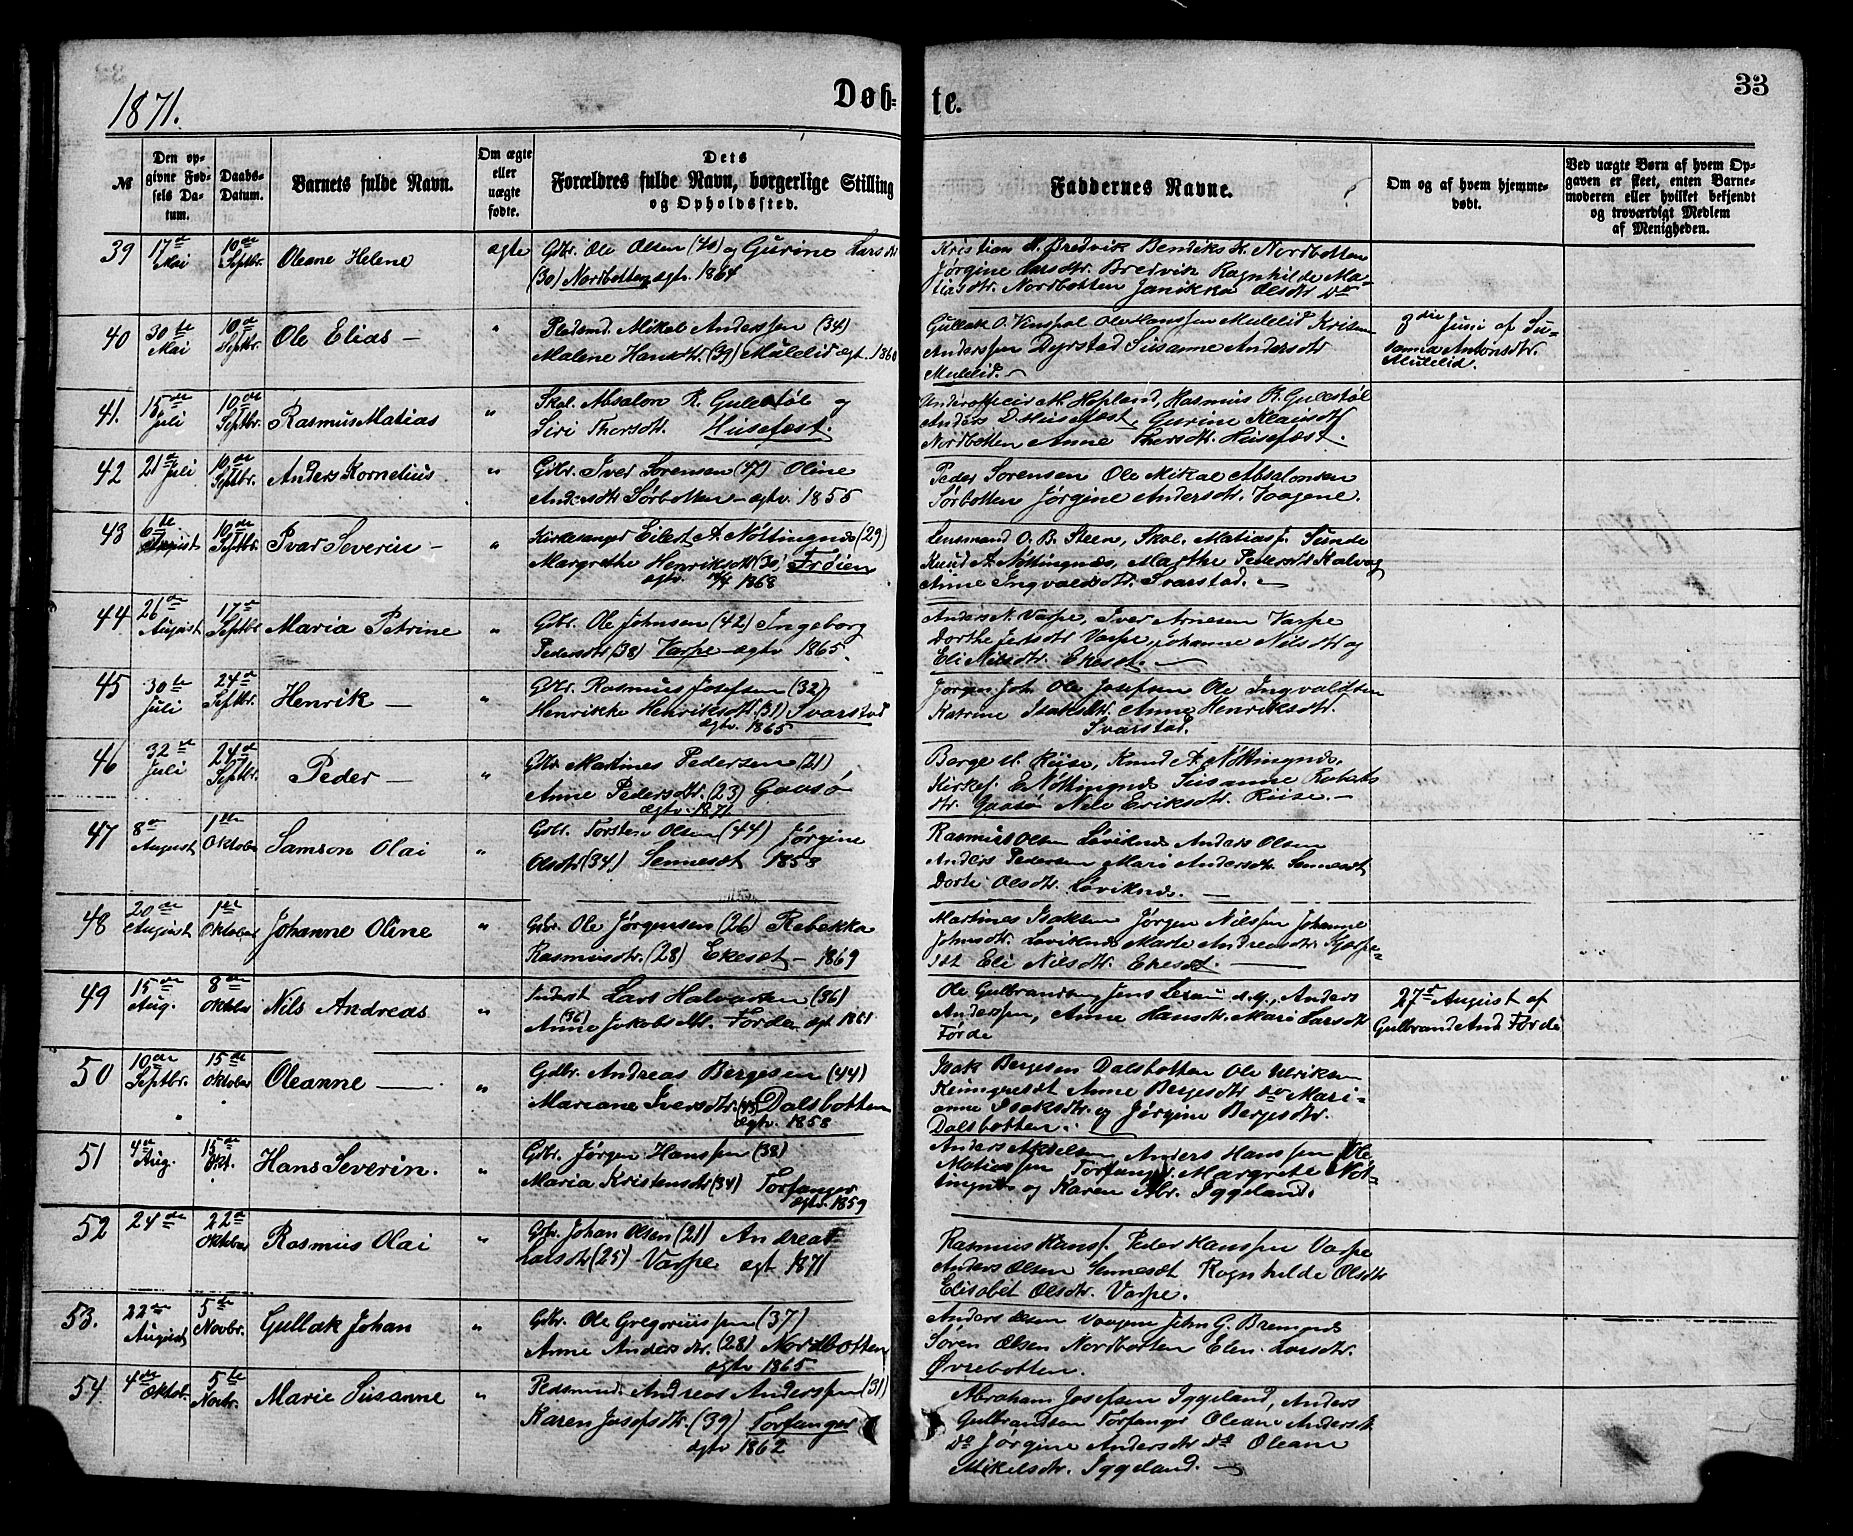 33
1871.
Døb-
te.
№
Den op-
givne Fød-
sels Da-
tum.
Daabs-
Datum.
Barnets fulde Navn.
Om ægte
eller
uægte
fødte.
Dets
Forældres fulde Navn, borgerlige Stilling
og Opholdssted.
Faddernes Navne.
Om og af hvem hjemme-
døbt.
Ved uægte Børn af hvem Op-
gaven er skeet, enten Barne-
moderen eller hvilket bekjendt
og troværdigt Medlem
af Menigheden.
39 17de Mai 10de Septbr. Oleane Helene ægte
Gbr. Ole Olsen (40) og Gurine Larsdtr
(30) Nordbotten ægtv. 1864
Kristian Bredvik Nordbotten
Jørgine Larsdtr. Bredvik Ragnhilde Ma-
tiasdtr. Nordbotten Janikka Olsdtr do
40 30te Mai 10de Septbr. Ole Elias — "
Mikal Anderssen (34)
Malene Hansdtr (39) Mulelid ægt. 1860
Gullak O. Ole Hanssen Mulelid
Anderssen Dyrstad Susanne Andersdtr
Mulelid.
Juni af Su-
sanna Antonsdtr.
Mulelid.
41. 15de Juli 10de Septbr. Rasmus Matias "
Skol. Absalon R. Gulestøl og
Siri Thorsdtr. Husefest.
Hopland, Rasmus R. Gulestøl
Anders D. Husefest, Gurine Klausdtr
Nordbotten Anne Thorsdtr. Husefæst.
42 21de Juli 10de Septbr. Anders Kornelius "
Gbr. Iver Sørensen (47) Oline
Andersdtr Sørbotten — ægtv. 1855
Peder Sørensen Ole Mikal Absalonsen
Sørbotten Jørgine Andersdtr. Vaagene.
43 6te August 10de Septbr. Ivar Severin — "
Kirkesanger Eilert A. Nøttingnæs (29)
Margrethe Henriksdtr (30) Frøien
ægtv. 1868
Lensmand O. B. Steen, Skol. Matias J. Sunde
Knud A. Nøttingnæs, Marthe Pedersdtr Kalvag
Anne Ingvaldsdtr. Svarstad. —
44 26de August 17de Septbr Maria Petrine "
Gbr. Ole Johnsen (42) Ingeborg
Pedersdtr (38) Varpe — ægtv 1865.
Anders N. Varpe, Iver Arnesen Varpe
Dorthe Varpe, Johanne Nilsdtr og
Eli Nilsdtr. Ekeset. —
45 30te Juli 24de Septbr. Henrik — "
Gbr. Rasmus Josefsen (32)
Henrikke Henriksdtr. (31) Svarstad
ægtv. 1865
Jørgen Joh. Ole Josefsen Ole Ingvaldsen
Katrine Isaksdtr. Anne Henriksdtr.
Svarstad.
46 32te Juli 24de Septbr. Peder — "
Gbr Martines Pedersen (21)
Anne Pedersdtr. (23) Gaasø
ægtv. 1871
Berge Riise, Knud A. Nøttingnæs.
Kirkes. E Nøttingnæs Susanne Roberts
dtr. Gaasø Nils Eriksdtr. Riise. —
47 8de August 1ste Oktober Samson Olai "
Gbr. Torsten Olsen (44) Jørgine
Olsdtr (34) Sennesæt 1853
Rasmus Olsen Løviknæs Anders Olsen
Anders Pedersen Mari Andersdtr Sennesæt
Dorte Olsdtr. Løviknæs. —
48 20de August 1ste Oktober Johanne Oline "
Gbr. Ole Jørgensen (26) Rebekka
Rasmusdtr. (28) Ekeset — 1869
Martines Isaksen Jørgen Nilssen Johanne
Johnsdtr. Løviknæs Marte Andreasdtr.
Eli Nilsdtr. Ekeset. —
49 15de Aug. 8de Oktober Nils Andreas "
Inderst Lars Halvorsen (36)
(36)
Anne Jakobsdtr. Førde, ægt. 1861
Ole Gulbrandsen, Jens Anders
Anderssen, Anne Hansdtr. Mari Larsdtr
Førde
27de August af
Gulbrand And. Førde
50 10de Septbr. 15de Oktober Oleanne — "
Gdbr. Andreas Bergesen (44)
Mariane Iversdtr. Dalsbotten
ægtv. 1858
Isak Bergesen Dalsbotten Ole Ulriksen
Anne Bergesdtr do Mari-
anne Isaksdtr. og Jørgine Bergesdtr.
Dalsbotten.
51 4de Aug. 15de Okt. Hans Severin. "
Gdbr. Jørgen Hanssen (38)
Maria Kristensdtr (34) Torfanger
ægtv. 1859
Anders Akselsen Anders Hanssen Ole
Matiassen Torfanger, Margrete Nøt-
tingnæs og Karen Abr. Iggeland.
52 24de 22de Oktober Rasmus Olai "
Gbr. Johan Olsen (21) Andrea
Larsdtr (25) Varpe ægt 1871
Rasmus Hans. Peder Hanssen Varpe
Anders Olsen Sennesæt Ragnhilde Olsdtr
Elisabet Olsdtr. Varpe.
53. 22de August 5te Novbr. Gullak Johan "
Gbr. Ole Gregoriussen (37)
Anne Andersdtr. (28) Nordbotten
ægtv 1865
Anders Olsen Vaagene John G. Bremnæs
Søren Olsen Nordbotten Elen Larsdtr.
Øvrebotten.
54. 4de Oktob. 5te Novbr. Marie Susanne "
Andreas Anderssen (31)
Karen Josefsdtr. (39) Torfanger
ægtv 1862
Abraham Josefsen Iggeland, Anders
Gulbrandsen Torfanger Oleane Andersdtr.
do Jørgine Andersdtr do Oleane
Mikelsdtr. Iggeland. —